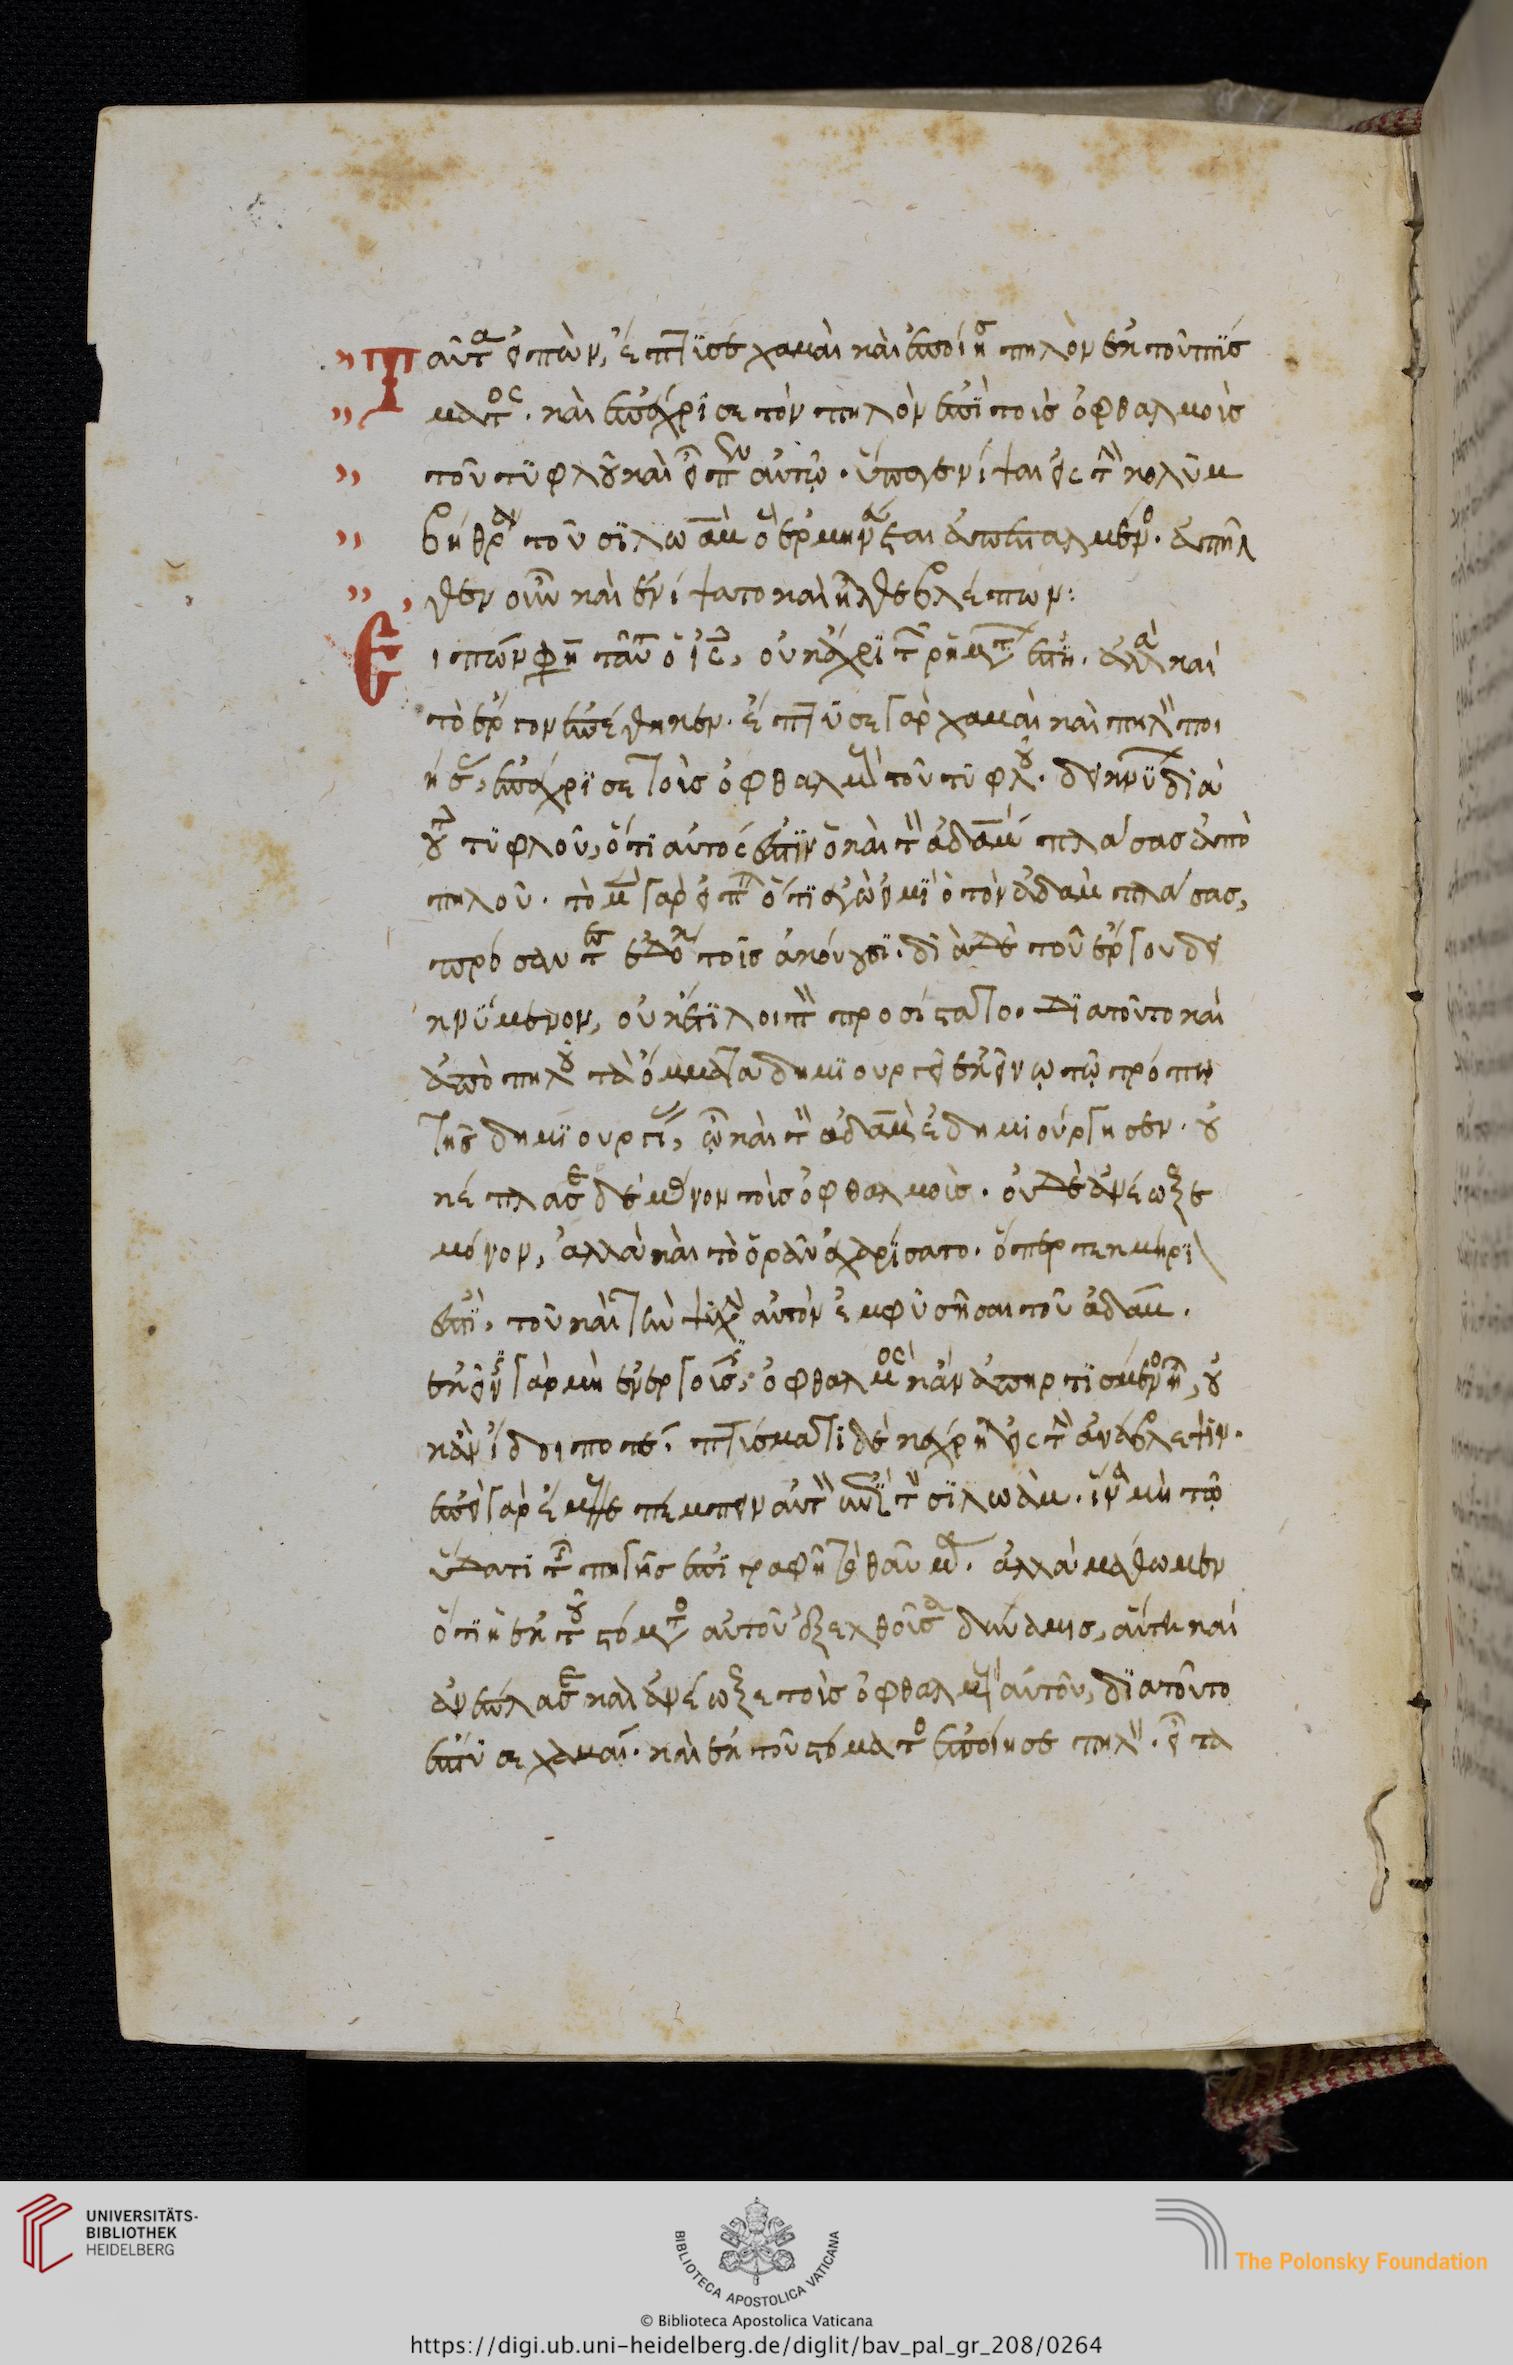 Ταῦτα εἰπὼν, ἔπτϊσε χαμαὶ καὶ ἐποίησε πηλὸν ἐκ τοῦ πτύσ
ματος. καὶ ἐπέχρϊσε τὸν πηλὸν ἐπὶ τοὺς ὀφθαλμοὺς
τοῦ τυφλοῦ καὶ εἶπεν αὐτῷ. ὕπαγε νίψαι εἰς τὴν κολυμ
βήθραν τοῦ σϊλωὰμ ὃ ἑρμηνεύεται ἀπεσταλμένος. ἀπῆλ
θεν οὖν καὶ ἐνίψατο καὶ ἦλθε βλέπων:
Εἰπὼν φη ταῦτα ὁ ις, οὐκ ἄχρϊ τῶν ῥημάτων ἔστη. ἀλλὰ καὶ
τὸ ἔργον ἐπέθηκεν. ἔπτυσε γὰρ χαμαὶ καὶ πηλὸν ποι
ήσας, ἐπέχρϊσε τοὺς ὀφθαλμοὺς τοῦ τυφλοῦ. δεικνὺς διὰ
τοῦ τυφλοῦ, ὅτι αὐτός ἐστϊν ὁ καὶ τὸν ἀδὰμ πλάσας ἀπὸ
πηλοῦ. τὸ μὲν γὰρ εἰπεῖν ὅτϊ ἐγὼ εἰμϊ ὁ τὸν ἀδὰμ πλάσας,
πρόσαντες ἐδόκει τοῖς ἀκούουσϊ. διὰ δὲ τοῦ ἔργου δει
κνύμενον, οὐκέτϊ λοιπὸν προσίστατο. διατοῦτο καὶ
ἀπὸ πηλοῦ τὰ ὄμματα δημϊουργεῖ ἐκείνῳ τῷ τρόπῳ
τῆς δημϊουργίας, ᾧ καὶ τὸν ἀδὰμ ἐδημιούργησεν. οὐ
κέπλασε δὲ μόνον τοὺς ὀφθαλμοὺς. οὐδὲ ἀνέωξε
μόνον, ἀλλὰ καὶ τὸ ὁρᾶν ἐχαρίσατο. ὅπερ τεκμήρϊ
ἐστϊ, τοῦ καὶ τὴν ψυχὴν αὐτὸν ἐμφυσῆσαι τοῦ ἀδάμ.
ἐκείνης γὰρ μὴ ἐνεργούσης, ὀφθαλμὸς κἂν ἀπηρτισμένος ᾖ, οὐ
κἂν ἴδοι ποτέ. πτύσματι δὲ κέχρηται εἰς τὴν ἀνάβλεψιν.
ἐπεὶ γὰρ ἔμελλε πέμπειν αὐτὸν εἰς τὸν σϊλωὰμ. ἵνα μὴ τῷ
ὕδατι τῆς πηγῆς ἐπιγραφῇ τὸ θαῦμα. ἀλλὰ μάθωμεν
ὅτϊ ἡ ἐκ τοῦ στόματος αὐτοῦ ἐξελθοῦσα δύναμις, αὕτη καὶ
ἀνέπλασε καὶ ἀνέωξε τοὺς ὀφθαλμοὺς αὐτοῦ, διατοῦτο
ἔπτυσε χαμαί. καὶ ἐκ τοῦ στόματος ἐποίησε πηλὸν. εἶτα
UNIVERSITÄTS-
BIBLIOTHEK
HEIDELBERG
BIBLIOTECA APOSTOLICA VATICANA
The Polonsky Foundation
© Biblioteca Apostolica Vaticana
https://digi.ub.uni-heidelberg.de/diglit/bav_pal_gr_208/0264